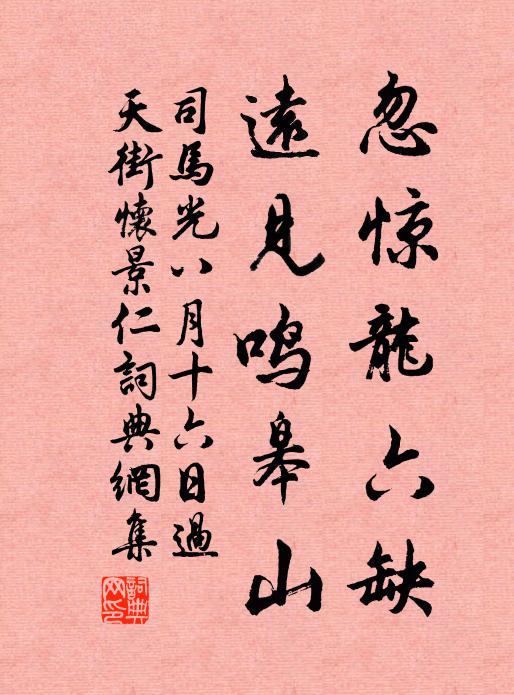 忽惊龍六缺
遠見鳴皋山
司馬光八月十六日過
天街懷景仁詞典網集
詞典網印